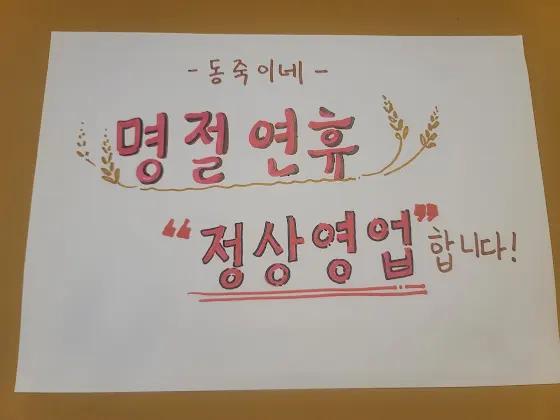 - 동죽이네 -
명절 연휴
"정상영업" 합니다!